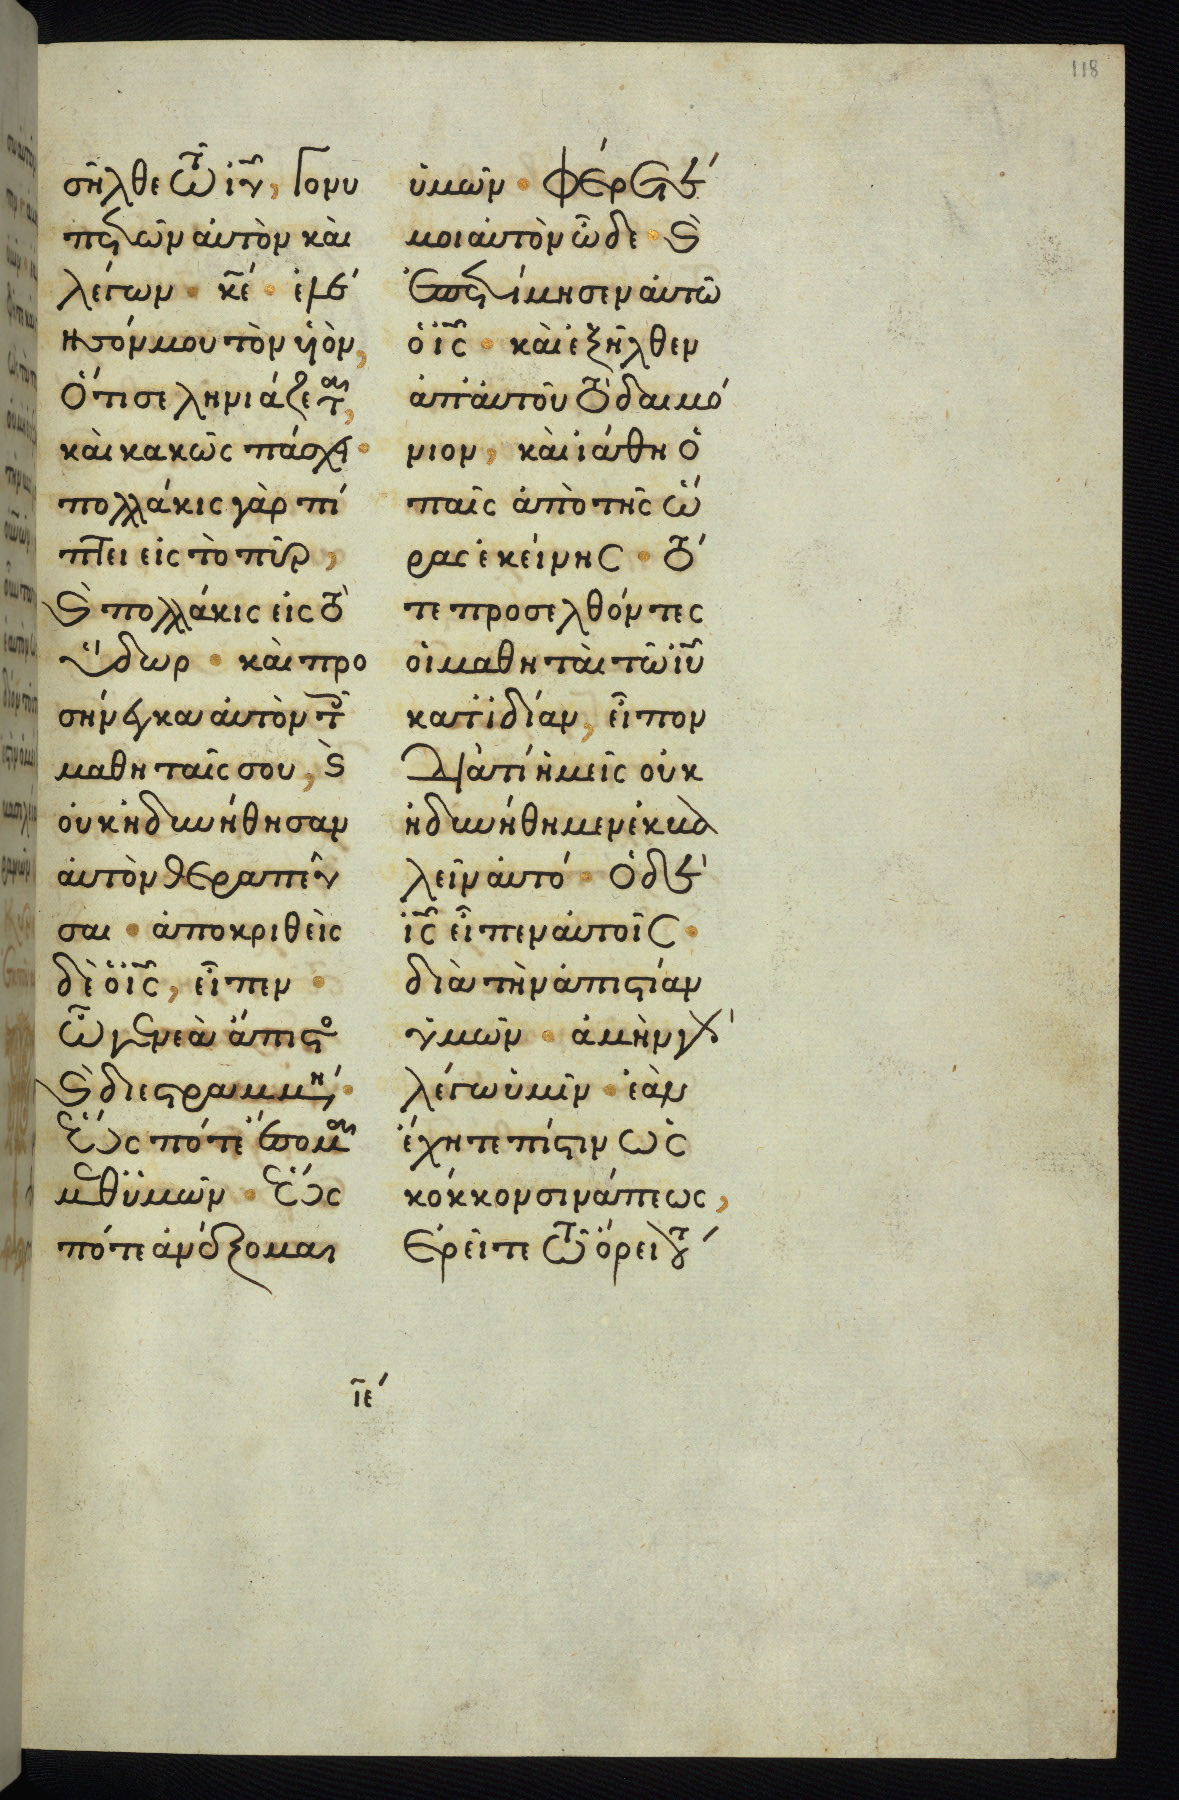 118
σῆλθε τῶ ἰῦ, γονυ
πετῶν αὐτὸν καὶ
λέγων · κ̅ε · ἐλέ
ησόν μου τὸν υἱὸν,
Ὅτι σεληνιάζεται,
καὶ κακῶς πάσχει ·
πολλάκις γὰρ πί
πτει εἰς τὸ πῦρ,
καὶ πολλάκις εἰς τὸ
ὕδωρ · καὶ προ
σήνεγκα αὐτὸν τοῖς
μαθηταῖς σου, καὶ
οὐκ ἠδυνήθησαν
αὐτὸν θεραπεῦ
σαι · ἀποκριθεὶς
δὲ ὁ ἰ̅ς, εἶπεν ·
Ὦ γενεὰ ἄπιστος
καὶ διεστραμμένη ·
Ἕως πότε ἔσομαι
μεθ ὑμῶν · Ἕως
πότε ἀνέξομαι
ὑμῶν · Φέρετέ
μοι αὐτὸν ὧδε · καὶ
ἐπετίμησεν αὐτῶ
ὁ ἰ̅ς · καὶ ἐξῆλθεν
ἀπ' αὐτοῦ τὸ δαιμό
νιον, καὶ ἰάθη ὁ
παῖς ἀπὸ τῆς ὥ
ρας ἐκείνης · τό
τε προσελθόντες
οἱ μαθηταὶ τῶ ἰ̅υ
κατ' ἰδίαν, εἶπον
Διατί ἡμεῖς οὐκ
ἠδυνήθημεν ἐκβα
λεῖν αὐτό · Ὁ δὲ
ἰ̅ς εἶπεν αὐτοῖς ·
διὰ τὴν ἀπιστίαν
ὑμῶν · ἀμὴν γὰρ
λέγω ὑμῖν · ἐὰν
ἔχητε πίστιν ὡς
κόκκον σινάπεως,
Ἐρεῖτε τῶ ὄρει τού
ι̅ε´